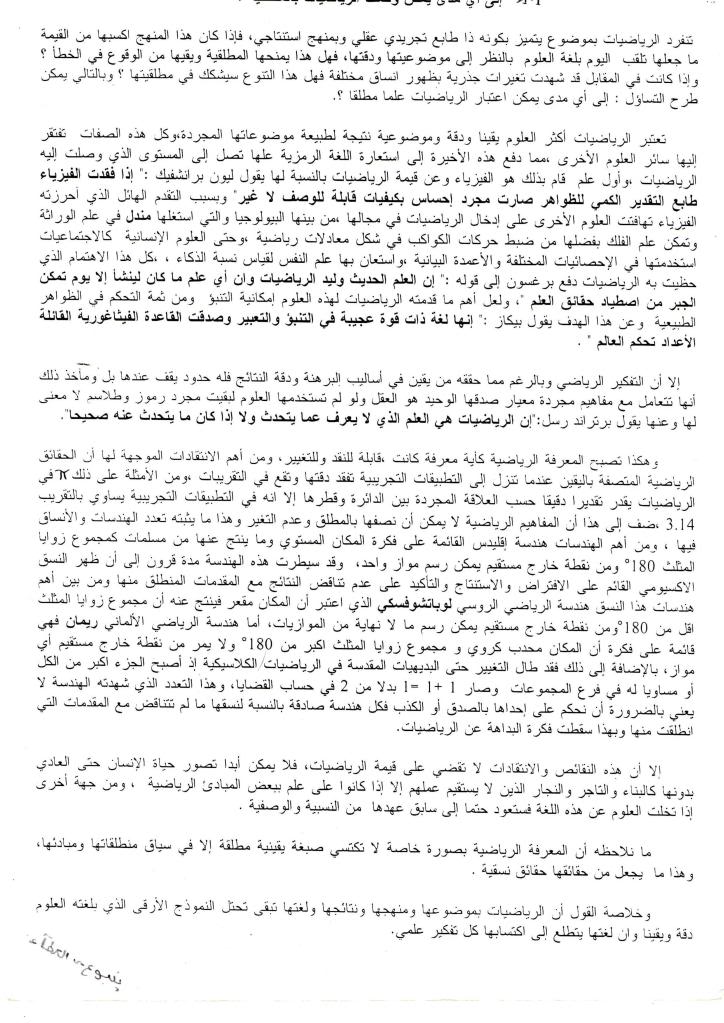 إلى أي مدى يمكن وصف الرياضيات
تنفرد الرياضيات بموضوع يتميز بكونه ذا طابع تجريدي عقلي وبمنهج استنتاجي، فإذا كان هذا المنهج اكسبها من القيمة
ما جعلها تلقب اليوم بلغة العلوم بالنظر إلى موضوعيتها ودقتها، فهل هذا يمنحها المطلقية ويقيها من الوقوع في الخطأ ؟
وإذا كانت في المقابل قد شهدت تغيرات جذرية بظهور انساق مختلفة فهل هذا التنوع سيشكك في مطلقيتها ؟ وبالتالي يمكن
طرح التساؤل : إلى أي مدى يمكن اعتبار الرياضيات علما مطلقا ؟.
تعتبر الرياضيات أكثر العلوم يقينا ودقة وموضوعية نتيجة لطبيعة موضوعاتها المجردة،وكل هذه الصفات تفتقر
إليها سائر العلوم الأخرى ،مما دفع هذه الأخيرة إلى استعارة اللغة الرمزية علها تصل إلى المستوى الذي وصلت إليه
الرياضيات ،وأول علم قام بذلك هو الفيزياء وعن قيمة الرياضيات بالنسبة لها يقول ليون برانشفيك :" إذا فقدت الفيزياء
طابع التقدير الكمي للظواهر صارت مجرد إحساس بكيفيات قابلة للوصف لا غير" وبسبب التقدم الهائل الذي أحرزته
الفيزياء تهافتت العلوم الأخرى على إدخال الرياضيات في مجالها ،من بينها البيولوجيا والتي استغلها مندل في علم الوراثة
وتمكن علم الفلك بفضلها من ضبط حركات الكواكب في شكل معادلات رياضية ،وحتى العلوم الإنسانية كالاجتماعيات
استخدمتها في الإحصائيات المختلفة والأعمدة البيانية ،واستعان بها علم النفس لقياس نسبة الذكاء ، ،كل هذا الاهتمام الذي
حظيت به الرياضيات دفع برغسون إلى قوله :" إن العلم الحديث وليد الرياضيات وان أي علم ما كان لينشأ إلا يوم تمكن
الجبر من اصطياد حقائق العلم "، ولعل أهم ما قدمته الرياضيات لهذه العلوم إمكانية التنبؤ ومن ثمة التحكم في الظواهر
الطبيعية وعن هذا الهدف يقول بيكاز :" إنها لغة ذات قوة عجيبة في التنبؤ والتعبير وصدقت القاعدة الفيثاغورية القائلة
الأعداد تحكم العالم " .
إلا أن التفكير الرياضي وبالرغم مما حققه من يقين في أساليب البرهنة ودقة النتائج فله حدود يقف عندها بل ومآخذ ذلك
أنها تتعامل مع مفاهيم مجردة معيار صدقها الوحيد هو العقل ولو لم تستخدمها العلوم لبقيت مجرد رموز وطلاسم لا معنى
لها وعنها يقول برتراند رسل:"إن الرياضيات هي العلم الذي لا يعرف عما يتحدث ولا إذا كان ما يتحدث عنه صحيحا".
وهكذا تصبح المعرفة الرياضية كأية معرفة كانت ،قابلة للنقد وللتغيير، ومن أهم الانتقادات الموجهة لها أن الحقائق
الرياضية المتصفة باليقين عندما تنزل إلى التطبيقات التجريبية تفقد دقتها وتقع في التقريبات ،ومن الأمثلة على ذلك π في
الرياضيات يقدر تقديرا دقيقا حسب العلاقة المجردة بين الدائرة وقطرها إلا انه في التطبيقات التجريبية يساوي بالتقريب
3.14 ،ضف إلى هذا أن المفاهيم الرياضية لا يمكن أن نصفها بالمطلق وعدم التغير وهذا ما يثبته تعدد الهندسات والأنساق
فيها ، ومن أهم الهندسات هندسة إقليدس القائمة على فكرة المكان المستوي وما ينتج عنها من مسلمات كمجموع زوايا
المثلث 180° ومن نقطة خارج مستقيم يمكن رسم مواز واحد، وقد سيطرت هذه الهندسة مدة قرون إلى أن ظهر النسق
الاكسيومي القائم على الافتراض والاستنتاج والتأكيد على عدم تناقض النتائج مع المقدمات المنطلق منها ومن بين أهم
هندسات هذا النسق هندسة الرياضي الروسي لوباتشوفسكي الذي اعتبر أن المكان مقعر فينتج عنه أن مجموع زوايا المثلث
اقل من 180°ومن نقطة خارج مستقيم يمكن رسم ما لا نهاية من الموازيات، أما هندسة الرياضي الألماني ريمان فهي
قائمة على فكرة أن المكان محدب كروي و مجموع زوايا المثلث اكبر من 180° ولا يمر من نقطة خارج مستقيم أي
مواز، بالإضافة إلى ذلك فقد طال التغيير حتى البديهيات المقدسة في الرياضيات/الكلاسيكية إذ أصبح الجزء اكبر من الكل
أو مساويا له في فرع المجموعات وصار 1 +1 =1 بدلا من 2 في حساب القضايا، وهذا التعدد الذي شهدته الهندسة لا
يعني بالضرورة أن نحكم على إحداها بالصدق أو الكذب فكل هندسة صادقة بالنسبة لنسقها ما لم تتناقض مع المقدمات التي
انطلقت منها وبهذا سقطت فكرة البداهة عن الرياضيات.
إلا أن هذه النقائص والانتقادات لا تقضي على قيمة الرياضيات، فلا يمكن أبدا تصور حياة الإنسان حتى العادي
بدونها كالبناء والتاجر والنجار الذين لا يستقيم عملهم إلا إذا كانوا على علم ببعض المبادئ الرياضية ، ومن جهة أخرى
إذا تخلت العلوم عن هذه اللغة فستعود حتما إلى سابق عهدها من النسبية والوصفية .
ما نلاحظه أن المعرفة الرياضية بصورة خاصة لا تكتسي صبغة يقينية مطلقة إلا في سياق منطلقاتها ومبادئها،
وهذا ما يجعل من حقائقها حقائق نسقية .
وخلاصة القول أن الرياضيات بموضوعها ومنهجها ونتائجها ولغتها تبقى تحتل النموذج الأرقى الذي بلغته العلوم
دقة ويقينا وان لغتها يتطلع إلى اكتسابها كل تفكير علمي.
ينبوع العطاء